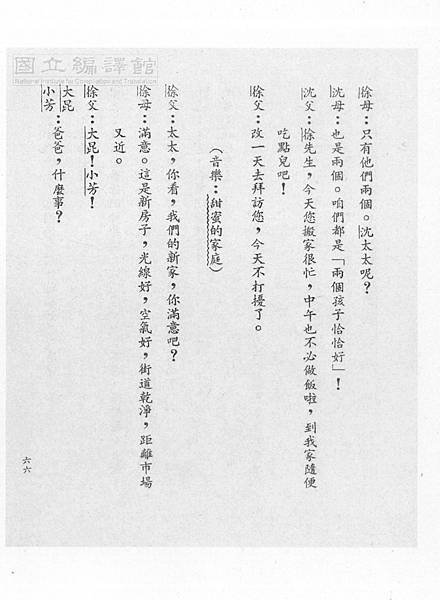 國立編譯館
National Institute for Compilation and Translation
徐母：只有他們兩個。沈太太呢？
沈母：也是兩個。咱們都是「兩個孩子恰恰好」！
沈父：徐先生，今天您搬家很忙，中午也不必做飯啦，到我家隨便
吃點兒吧！
徐父：改一天去拜訪您，今天不打擾了。
（音樂：甜蜜的家庭）
徐父：太太，你看，我們的新家，你滿意吧？
徐母：滿意。這是新房子，光線好，空氣好，街道乾淨，距離市場
又近。
徐父：大昆！小芳！
大昆
小芳：爸爸，什麼事？
六六